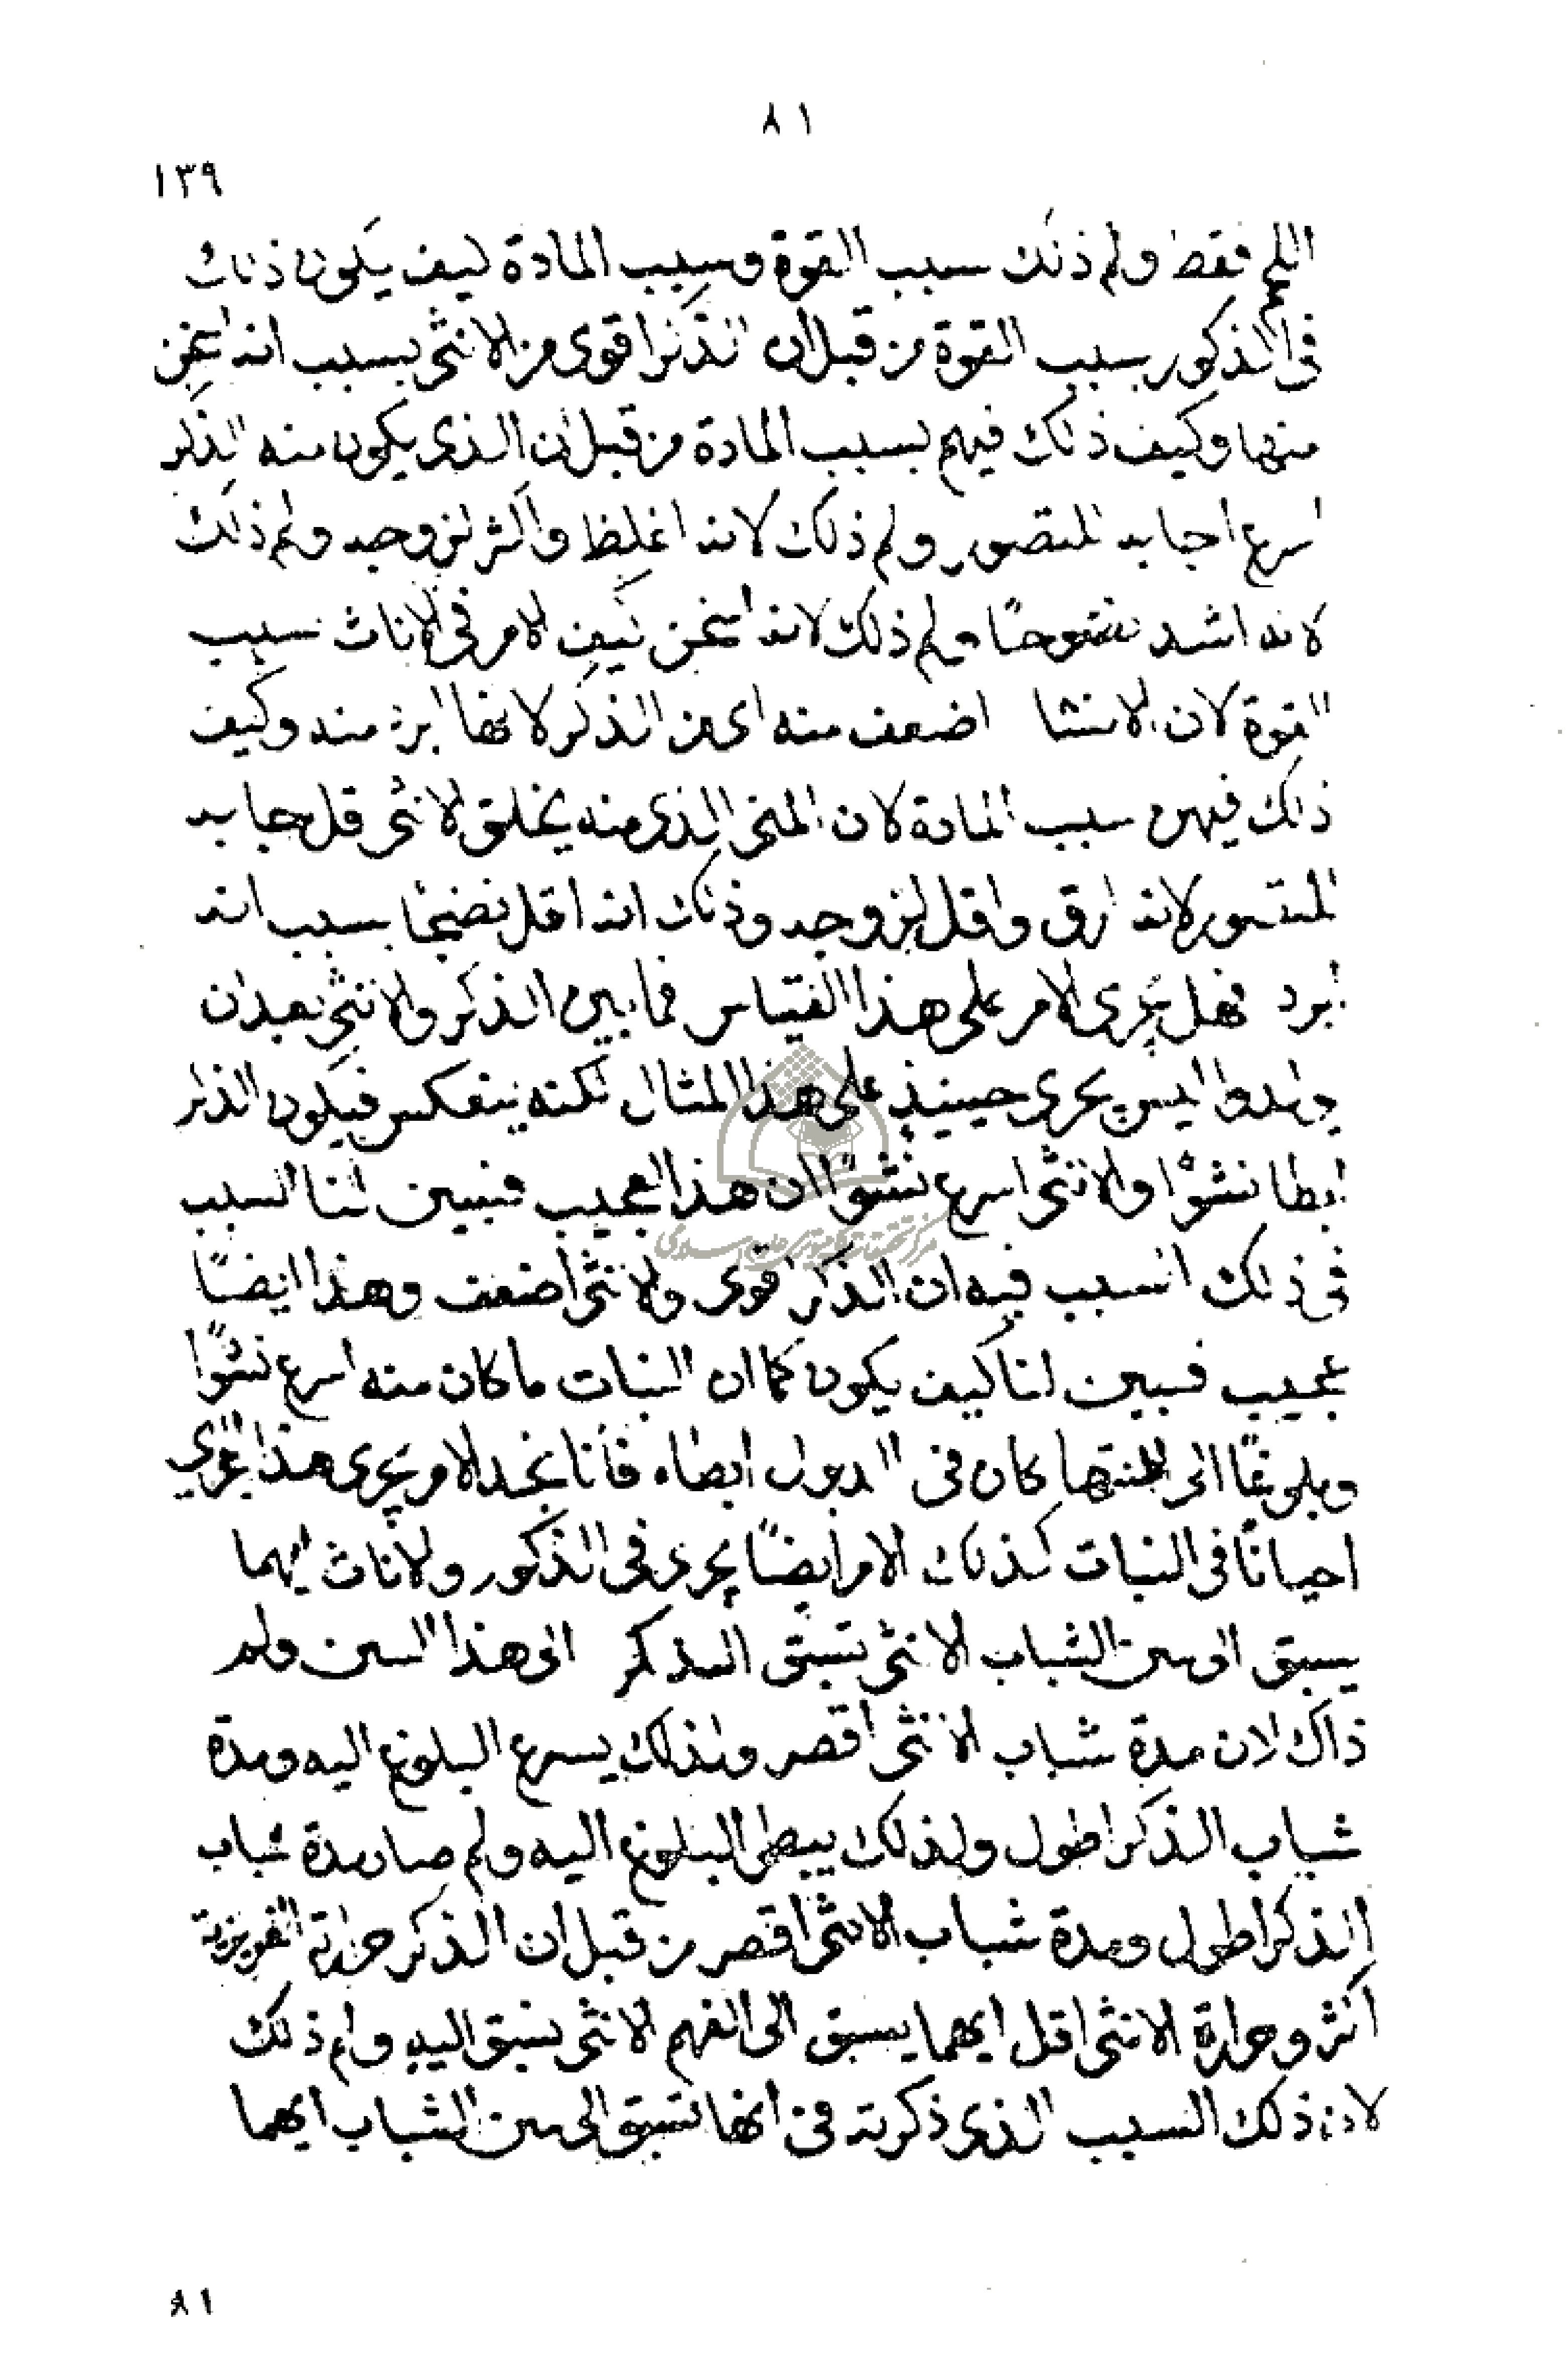 ٨١
١٣٩
الكم فقط ولم ذلك سبب القوة وسبب المادة كيف يكون ذلك
فى الذكور بسبب القوة من قبل ان الذكر اقوى من الانثى بسبب انه اسخن
منها وكيف ذلك فيهم بسبب المادة من قبل ان الذى يكون منه الذكر
اسرع اجابه للتصور ولم ذلك لانه اغلظ واكثر لزوجه ولم ذلك
لانه اشد نضوجا ولم ذلك لانه اسخن كيف الامر فى الاناث بسبب
القوة لان الانثا اضعف منه اى من الذكر لانها ابرد منه وكيف
ذلك فيهن سبب المادة لان المنى الذى منه يخلق الانثى اقل اجابه
للتصور لانه ارق واقل لزوجه وذلك انه اقل نضجا بسبب انه
ابرد فهل يجرى الامر على هذا القياس فما بين الذكر والانثى بعد ان
يولدوا ليس يجرى حينيذ على هذا المثال لكنه ينعكس فيكون الذكر
ابطا نشوًا والانثى اسرع نشوًا ان هذا العجيب فبين لنا السبب
فى ذلك السبب فيه ان الذكر اقوى والانثى اضعف وهذا ايضًا
عجيب فبين لنا كيف يكون كما ان النبات ما كان منه اسرع نشوًا
الى المنتها كان فى ايضا فأنا نجد الامر يجرى هذا المجرى
احيانًا فى النبات كذلك الامر ايضًا يجرى فى الذكور والاناث ايهما
يسبق الى سن الشباب الانثى تسبق الذكر الى هذا السن ولم
ذاك لان مدة شباب الانثى اقصر ولذلك يسرع البلوغ اليه ومدة
شباب الذكر اطول ولذلك يبطى البلوغ اليه ولم صار مدة شباب
الذكر اطول ومدة شباب الانثى اقصر من قبل ان الذكر حرارته الغريزية
اكثر وحرارة الانثى اقل ايهما يسبق الى الفهم الانثى تسبق اليه ولم ذلك
لان ذلك السبب الذى ذكرته فى انها تسبق الى سن الشباب ايهما
مركز تحقيقات كامپيوترى علوم اسلامى
٨١